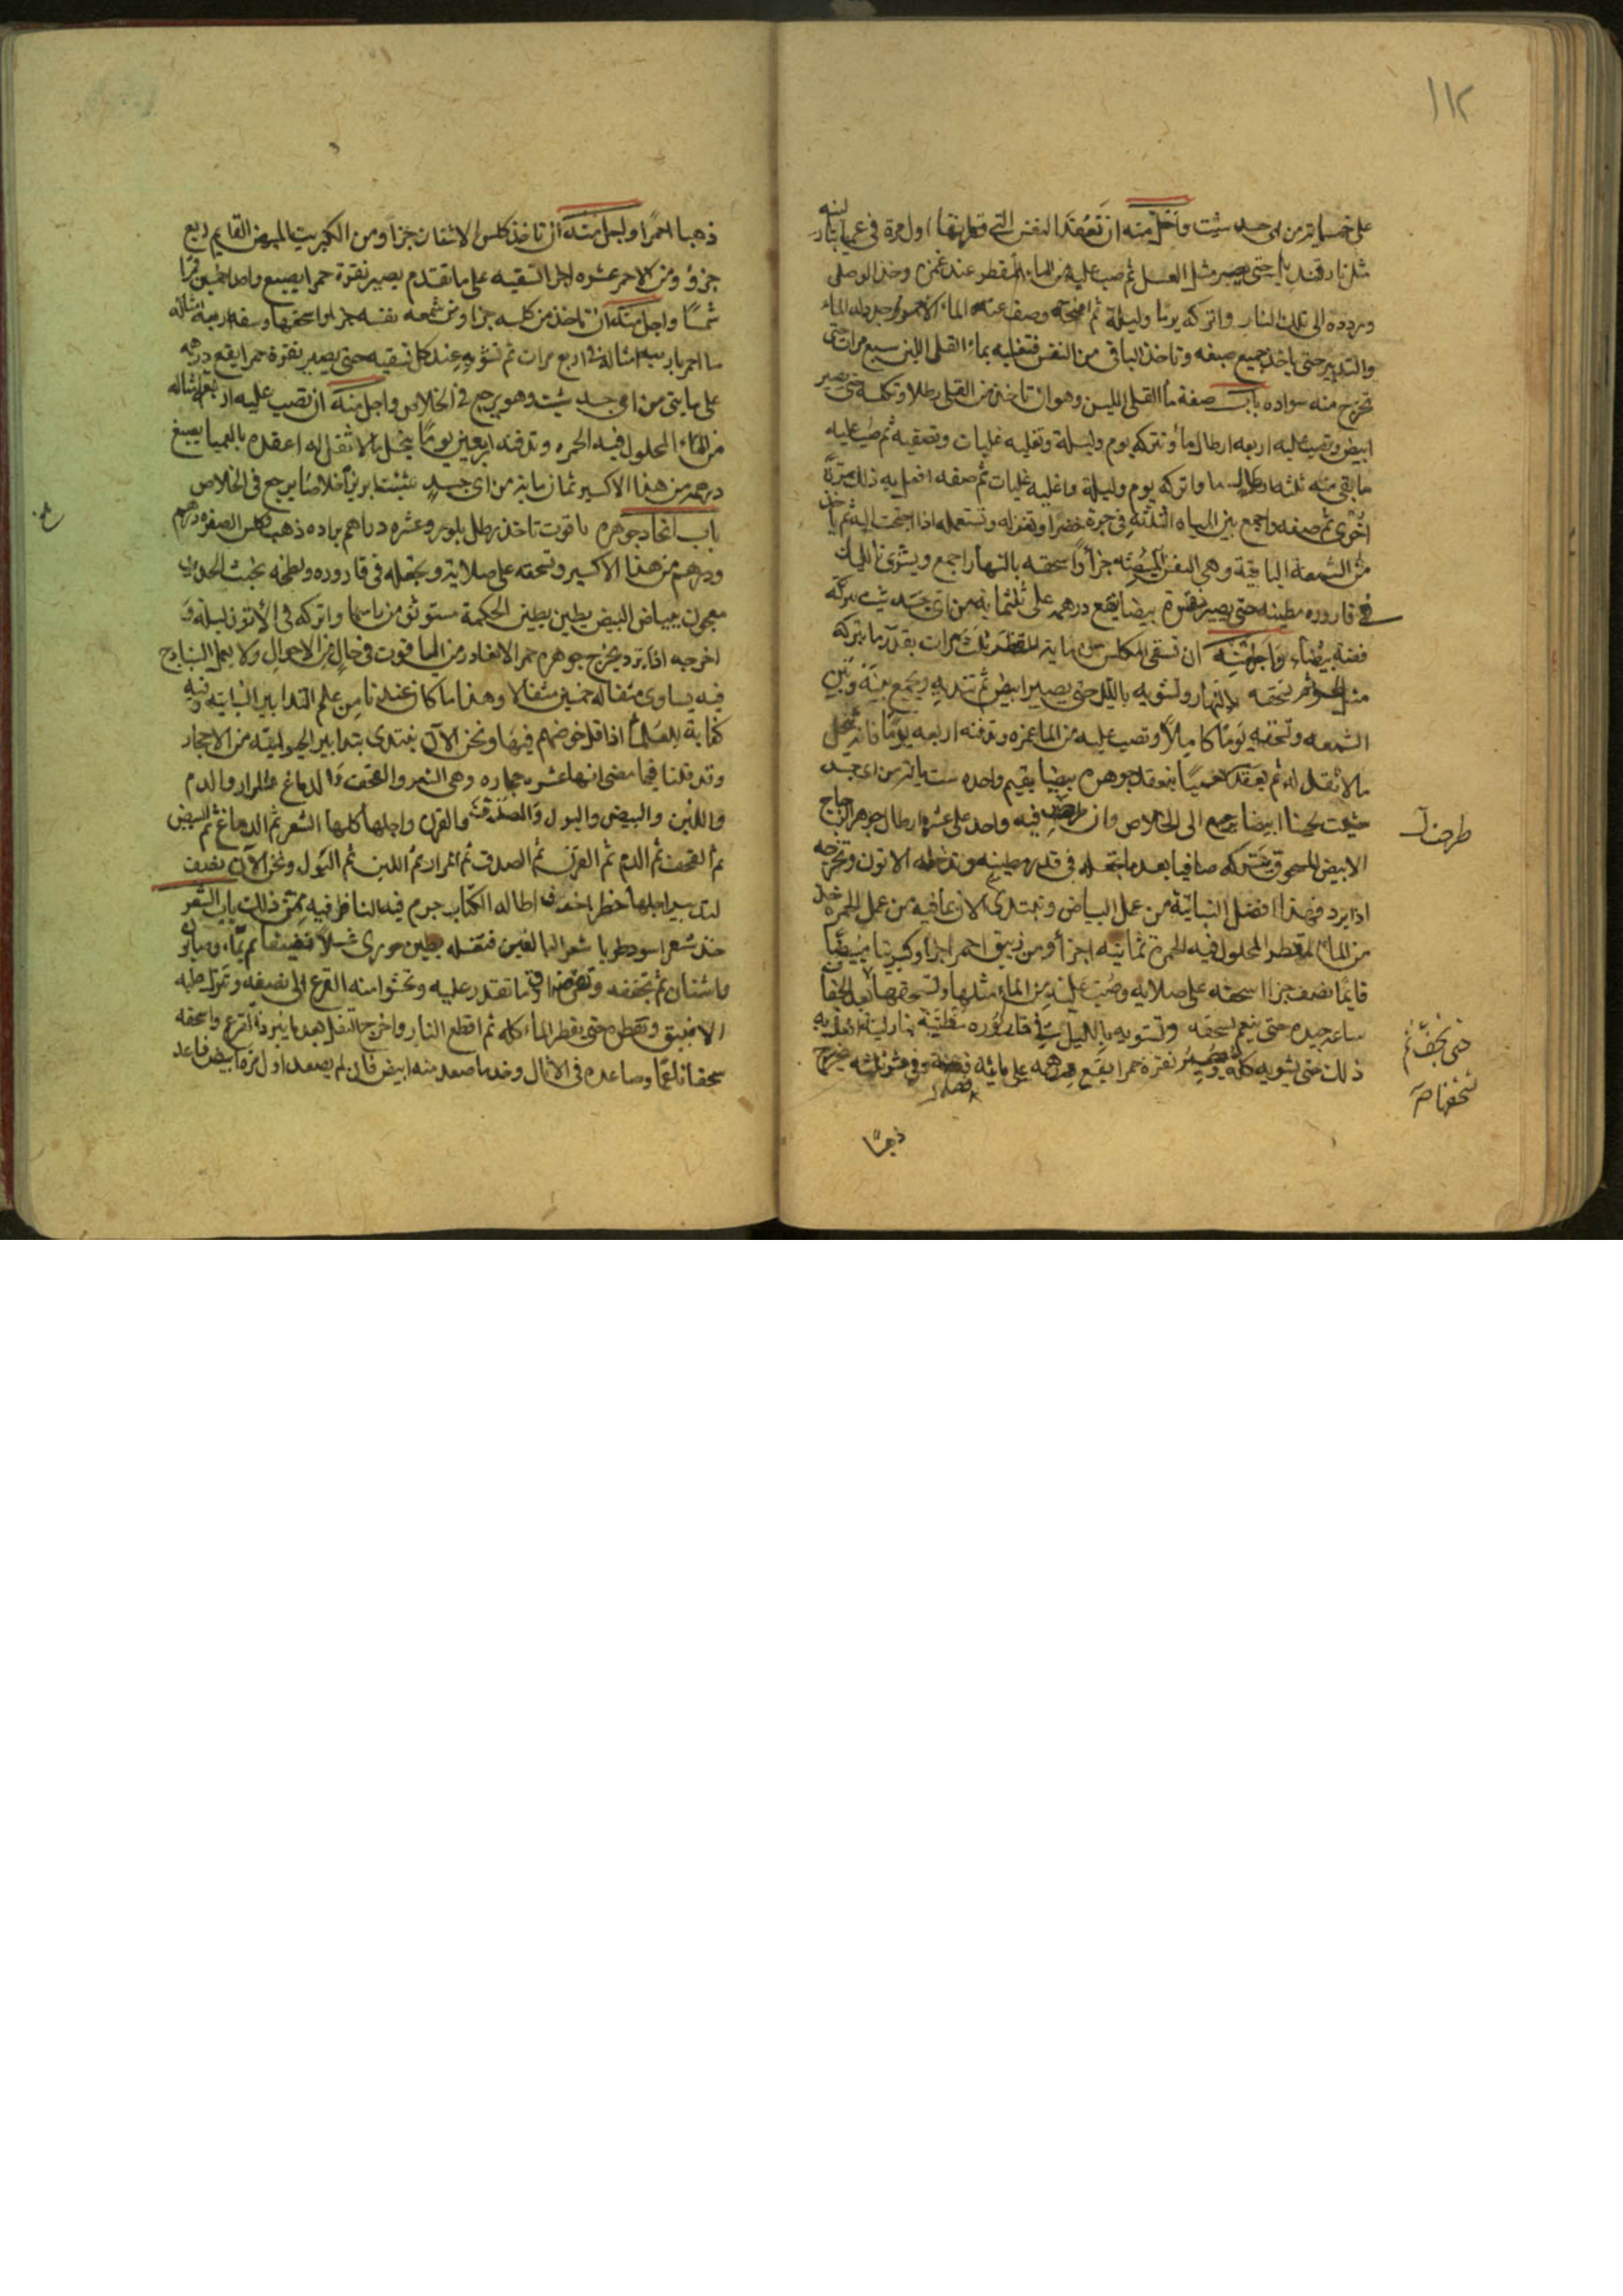 ١١٢
على خمسماية من اى جسد شئت واجل منه ان تعقد النفس التى قطرتها اول مرة فى عميا بنار لينه
مثل نار قنديل حتى يصير مثل العسل ثم صب عليه من الماء المقطر عند غمره وخذ الوصلى
وردده الى تلك النار واتركه يوما وليلة ثم افتحه وصف عنه الماء الاحمر
والتدبير حتى ياخذ جميع صبغه وتاخذ الباقى من النفس فتغليه بماء القلى اللين سبع مرات حتى
تخرج منه سواده باب صفة ماء القلى اللين وهو ان تاخذ من القلى رطلا وتكلسه حتى يصير
ابيض وتصب عليه اربعه ارطال ماء وتتركه يوم وليلة وتغليه غليات وتصفيه ثم صب عليه
ما بقى منه ثلثه ارطال ما واتركه يوم وليلة واغليه غليات ثم صفه افعل به ذلك مرة
اخرى ثم صفه واجمع بين المياه الثلثة فى جرة خضرا وتعزله وتستعمله اذا احتجت اليه ثم ياخذ
من الشمعة الباقية وهى النفس المبيضه جزأ واسحقه بالنهار اجمع ويشوى بالليل
فى قاروره مطينه حتى يصير نقرة بيضا يقع درهم على ثلثماية من اى جسد شئت تركه
فضة بيضاء واجل منه ان تسقى المكلس من ماية المقطر ثلث مرات بقدر ما يتركه
مثل ثم تسحقه بالنهار وتشويه بالليل حتى يصير ابيض ثم تنديه وتجمع بينه وبين
الشمعه وتسحقه يوما كاملا وتصب عليه من الماء غمره وتدفنه اربعه يوما فانه ينحل
ما لا ثقل له ثم يعقد العميا ينعقد جوهرة بيضا يقيم واحده ستماية من اى جسد
شئت لجينا ابيضا يرجع الى الخلاص وان فيه واحد على عشرة ارطال جوهر الزجاج
طرحت
الابيض المسحوق يتركه صافيا بعدما تجعله فى قدر مطينه وتدخله الاتون وتخرجه
اذا برد فهذا افضل النباتية من عمل البياض ونبتدى الان عافيه من عمل الحمرة خذ
من الماء المقطر المحلول فيه الحمرة ثمانيه اجزأ ومن زيبق احمر اجزأ وكبريتا مبيضا
قايما نصف جزا اسحقه على صلايه وصب عليه من الماء مثلها وتسحقها بعد الجفاف
حتى تجف ثم
ساعه جيده حتى ينعم سحقه وتشويه بالليل فى قاروره مطينه بنار لينه افعل به
تسحقها صح
ذلك حتى يشويه كله ويصير نقرة حمرا يقع درهم على مائه فضة
ذهبا
ذهبا احمرا واجل منه ان تاخذ كلس الاشنان جزا ومن الكبريت المبيض القايم ربع
جزؤ ومن الاحمر عشره اجزا لتسقيه على ما تقدم يصير نقرة حمرا يصبغ واحد خمسين قمرا
شمسا واجل منه ان تاخذ من كلسه جزا ومن شمعه نفسه جزا واسحقها وسقه اربعة امثاله
ما احمر اربع مرات ثم تشويه عند كل تسقيه حتى يصير نقرة حمرا يقع درهم
على مايتى من اى جسد شئت وهو يرجع فى الخلاص واجل منه ان تصب عليه اربعة امثاله
من الماء المحلول فيه الحمره وتدفنه اربعين يوما ينحل ما لا ثقل له اعقده بالعميا يصبغ
درهم من هذا الاكسير ثمان ماية من اى جسد شئت ابريزا خلاصا يرجع فى الخلاص
باب اتخاذ جوهرة ياقوت تاخذ رطل بلور وعشره دراهم براده ذهب كلس الصفره درهم
ودرهم من هذا الاكسير وتسحقه على صلاية وتجعله فى قاروره وتطينه بخبث الحديد
معجون ببياض البيض بطين الحكمة مستوثق من راسها واتركه فى الاتون ليلة و
اخرجه اذا برد يخرج جوهره حمرا لا يغادر من الياقوت فى حال من الاحوال ولا يعمل النار
فيه يساوى مثقاله خمسين مثقالا وهذا ما كان عندنا من علم التدابير النباتية وفيه
كفاية للعلماء اذا قل خوضهم فيها ونحن الآن نبتدى بتدابير الحيوانيه من الاحجار
وقد قلنا فيما مضى انها عشره حجاره وهى الشعر والقحف والدماغ والمرار والدم
واللبن والبيض والبول والصدف والقرن واجلها كلها الشعر ثم الدماغ ثم البيض
ثم القحف ثم الدم ثم القرن ثم الصدف ثم المرار ثم اللبن ثم البول ونحن الآن نصف
لتدبير اجلها خطر الخوف اطاله الكتاب جرم فيه الناظر فيه فمن ذلك باب الشعر
خذ شعر اسود طريا شعر البالغين فتغسله بطين حورى غسلا نظيفا ثم بماء وصابون
واشنان ثم تجففه وتقرضه ادق ما تقدر عليه وتحشوا منه القرع الى نصفه وتركب عليه
الانبيق وتقطره حتى يقطر الماء كله ثم اقطع النار واخرج الثفل بعد ما يبرد القرع واسحقه
سحقا ناعما وصاعده فى الاثال وخذ ما صعد منه ابيض فان لم يصعد اول مرة ابيض فاعد